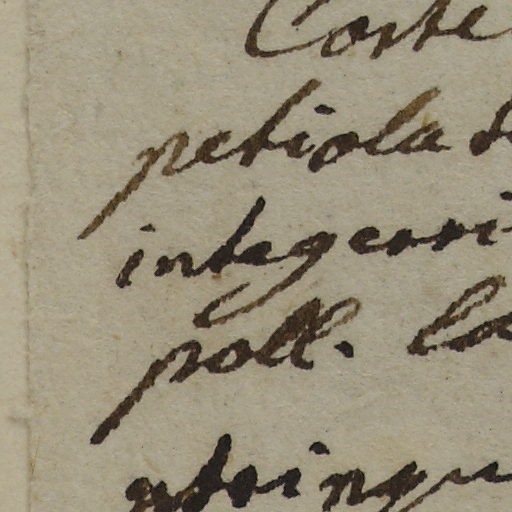 Corte
petiola
integerri
poll. la
utrinqu